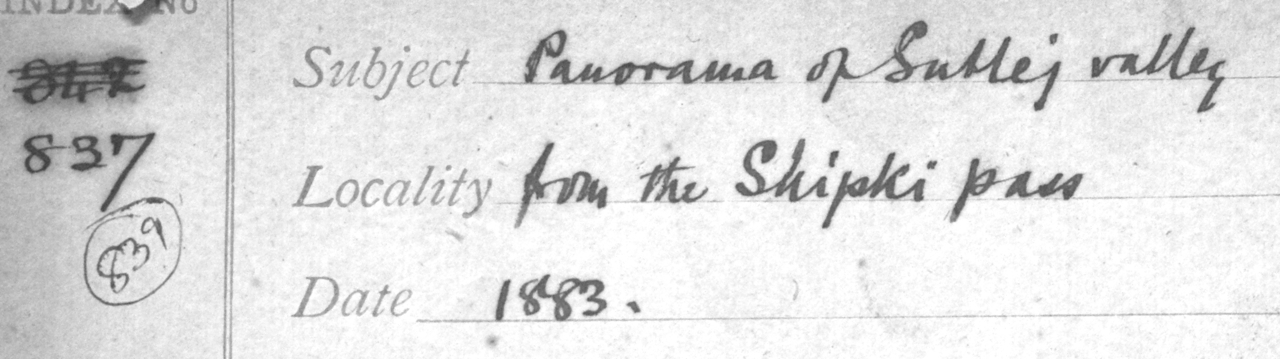 INDEX No
842
837
839
Subject Panorama of Sutlej valley
Locality from the Shipki pass
Date 1883.